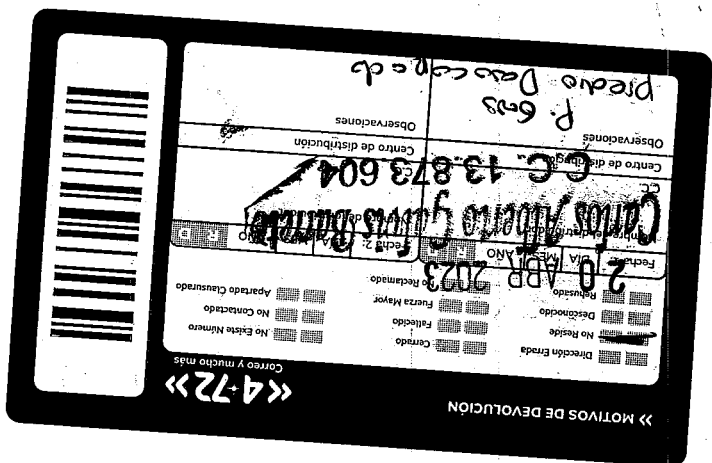 » MOTIVOS DE DEVOLUCIÓN
«4-72»
Correo y mucho más
Dirección Errada
No Reside
Desconocido
Rehusado
Cerrado
Fallecido
Fuerza Mayor
No Reclamado
No Existe Número
No Contactado
Apartado Clausurado
Fecha 1: DÍA MES AÑO R D
20 ABR 2023
Fecha 2: DÍA MES AÑO R D
Carlos Alberto
C.C. 13.873 604
Centro de distribución
Centro de distribución
Observaciones
Observaciones
predio Desocupado